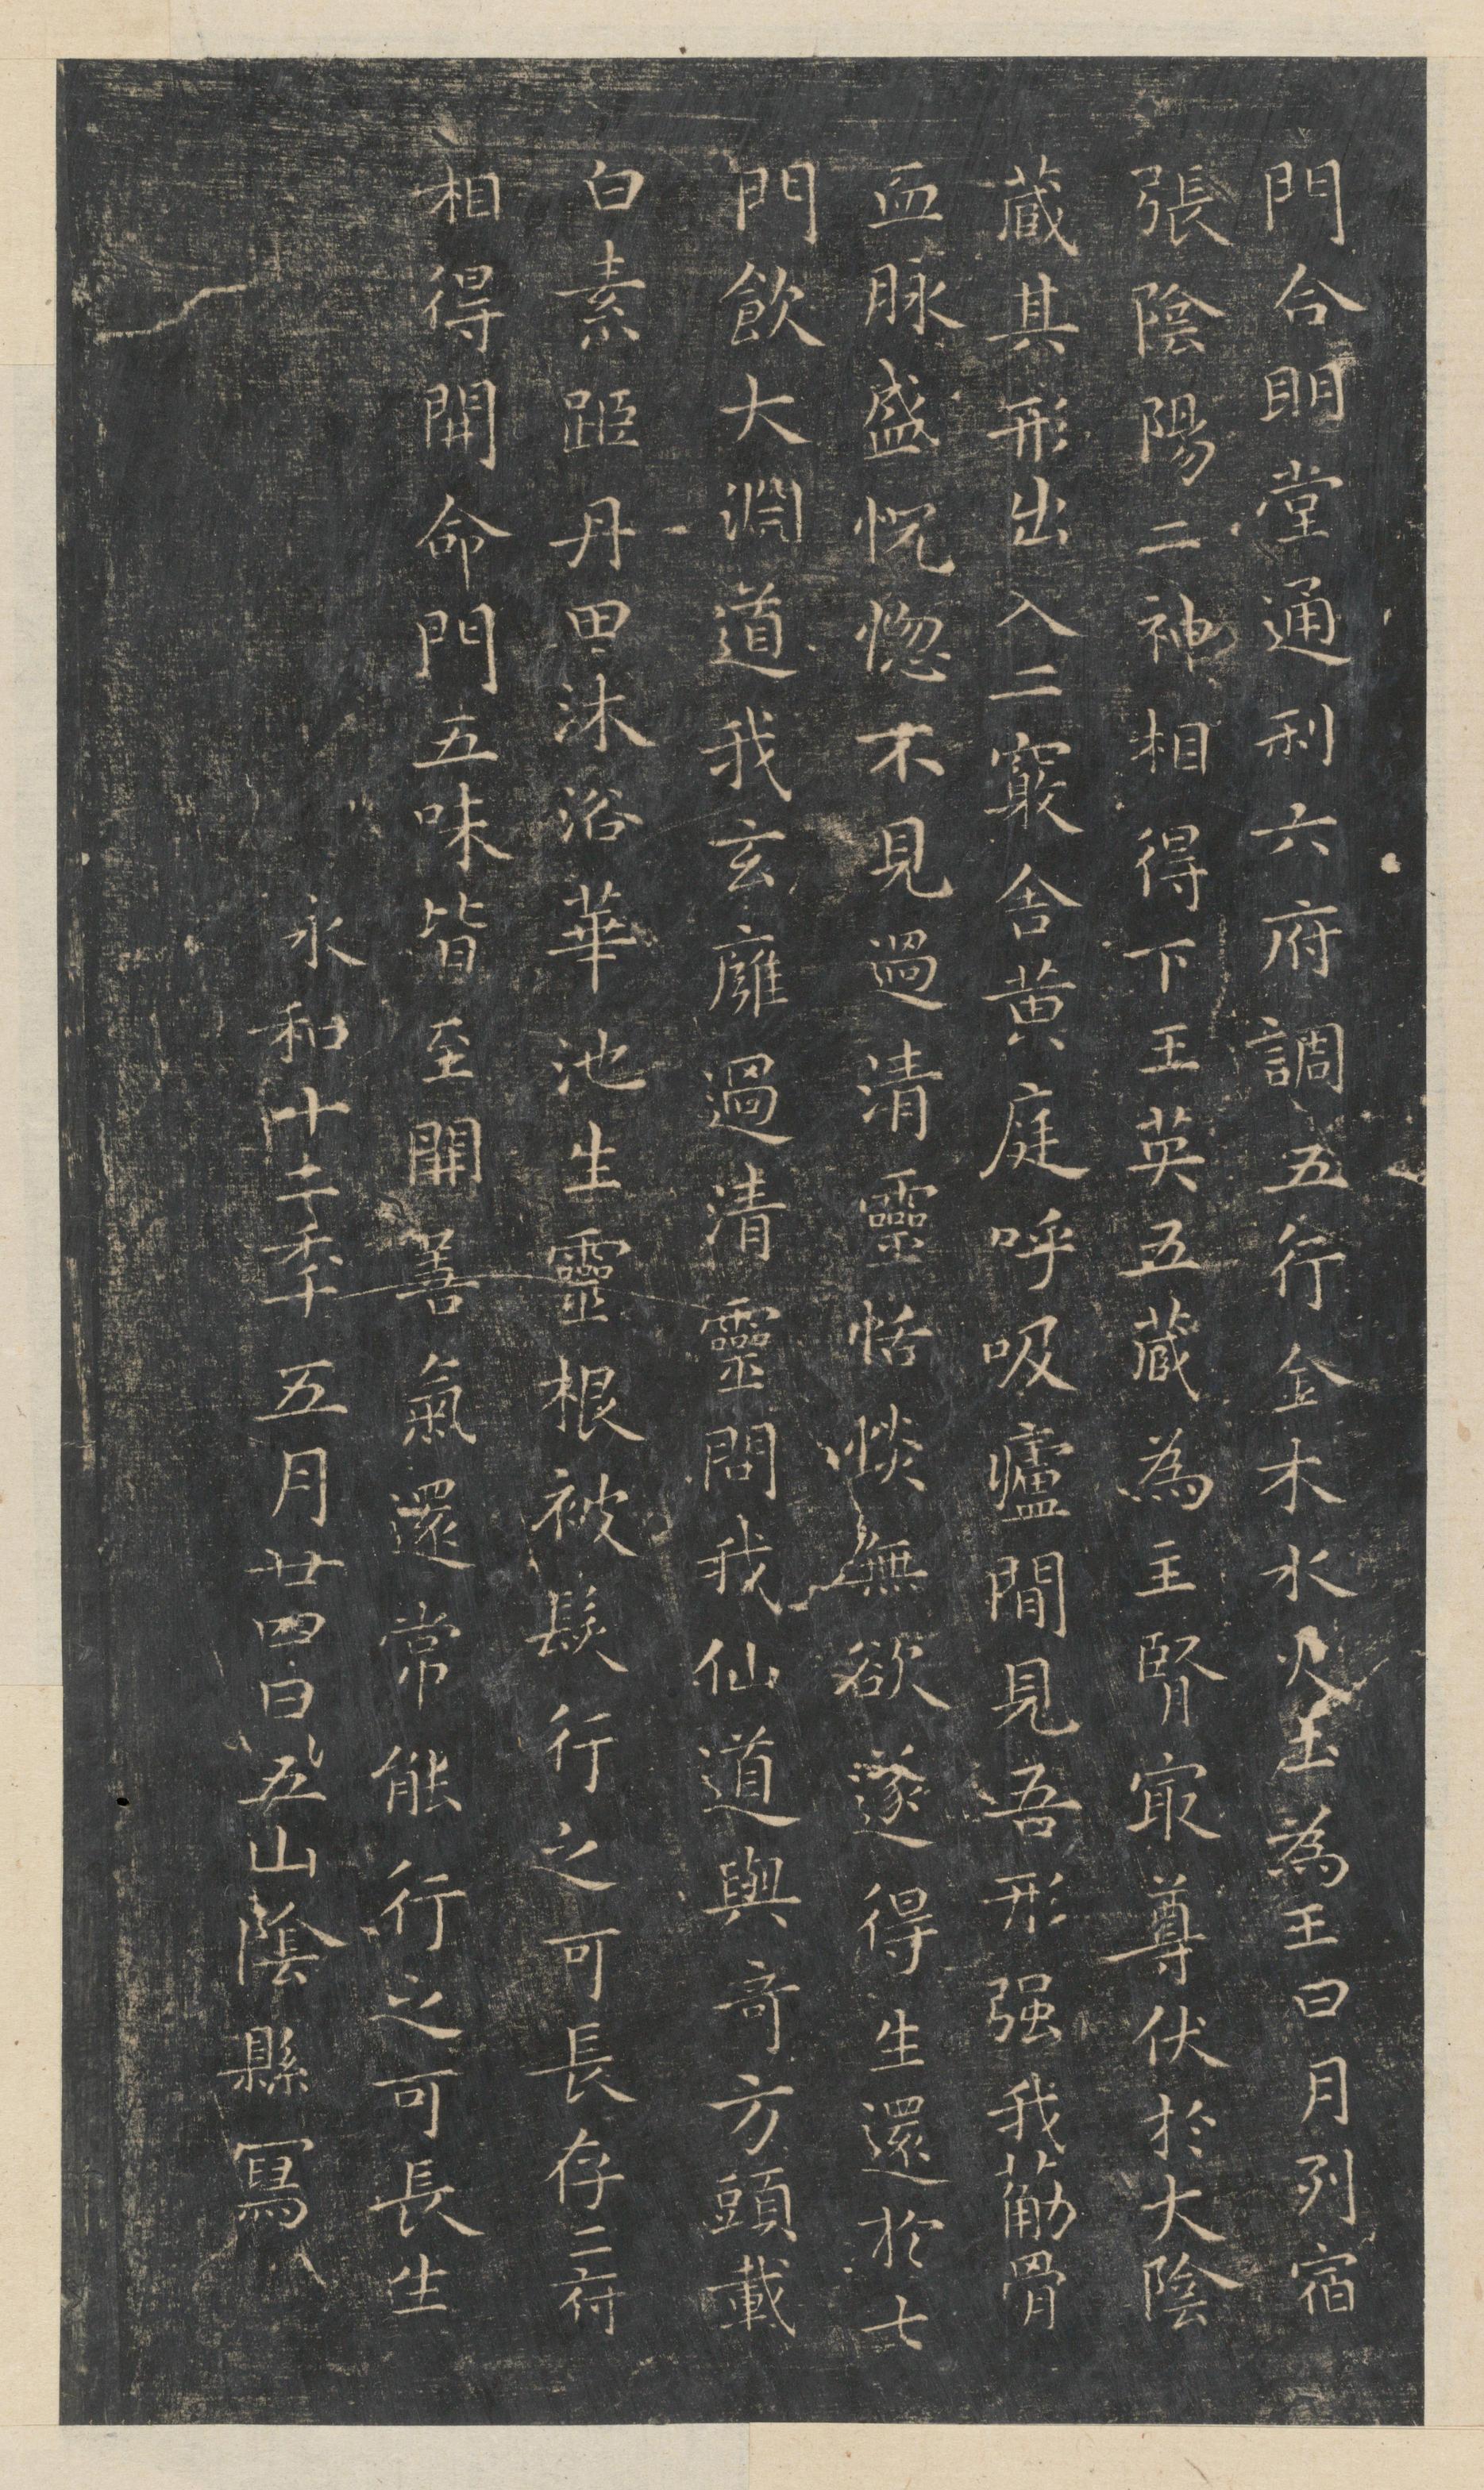 門合明堂通利六府調五行金木水火土為王日月列宿
張陰陽二神相得下玉英五藏為主腎㝡尊伏於大陰
藏其形出入二竅舍黃庭呼吸廬間見吾形强我筋骨
血脉盛怳惚不見過清靈恬惔無欲遂得生還於七
門飲大淵道我玄廱過清靈問我仙道與奇方頭載
白素距丹田沐浴華池生靈根被髮行之可長存二府
相得開命門五味皆至開善氣還常能行之可長生
永和十二年五月廿四日五山陰縣寫